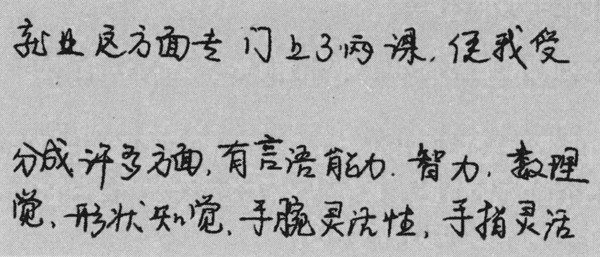 就业这方面专门上了两课,使我受
分成许多方面,有言语能力.智力,数理
觉、形状知觉,手腕灵活性,手指灵活